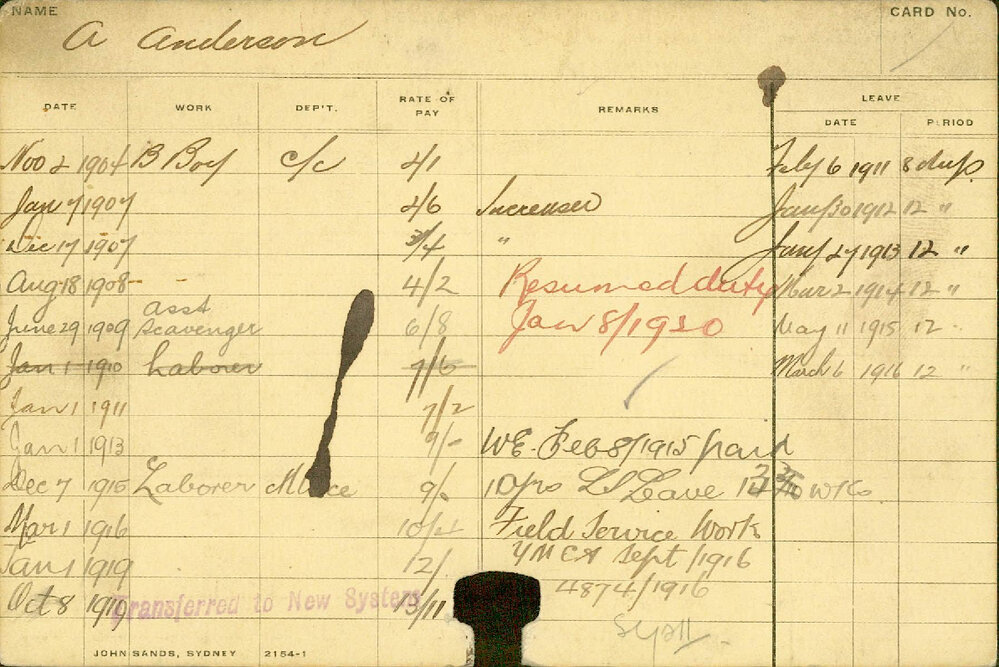 NAME A Anderson CARD No.
DATE WORK DEP'T. RATE OF PAY REMARKS LEAVE
DATE PERIOD
Nov 2 1904 B Boy c/c 2/1 Feby 6 1911 8 days
Jan 7 1907 2/6 Increased Jany 30 1912 12 "
Dec 17 1907 3/4 " Jany 27 1913 12 "
Aug 18 1908 4/2 Resumed duty Mar 2 1914 12 "
June 29 1909 asst Scavenger 6/8 Jan 8/1920 May 11 1915 12 "
Jan 1 1910 Laborer 7/6 March 6 1916 12 "
Jan 1 1911 7/2
Jan 1 1913 9/- W.E. Feb 8/1915 paid
Dec 7 1915 Laborer 9/- 10 yrs LS Leave Wks
Mar 1 1916 10/4 Field Service Work
Jan 1 1919 12/ YMCA Sept/1916
Oct 8 1919 Transferred to New System 13/11 4874/1916
JOHN SANDS, SYDNEY 2154-1